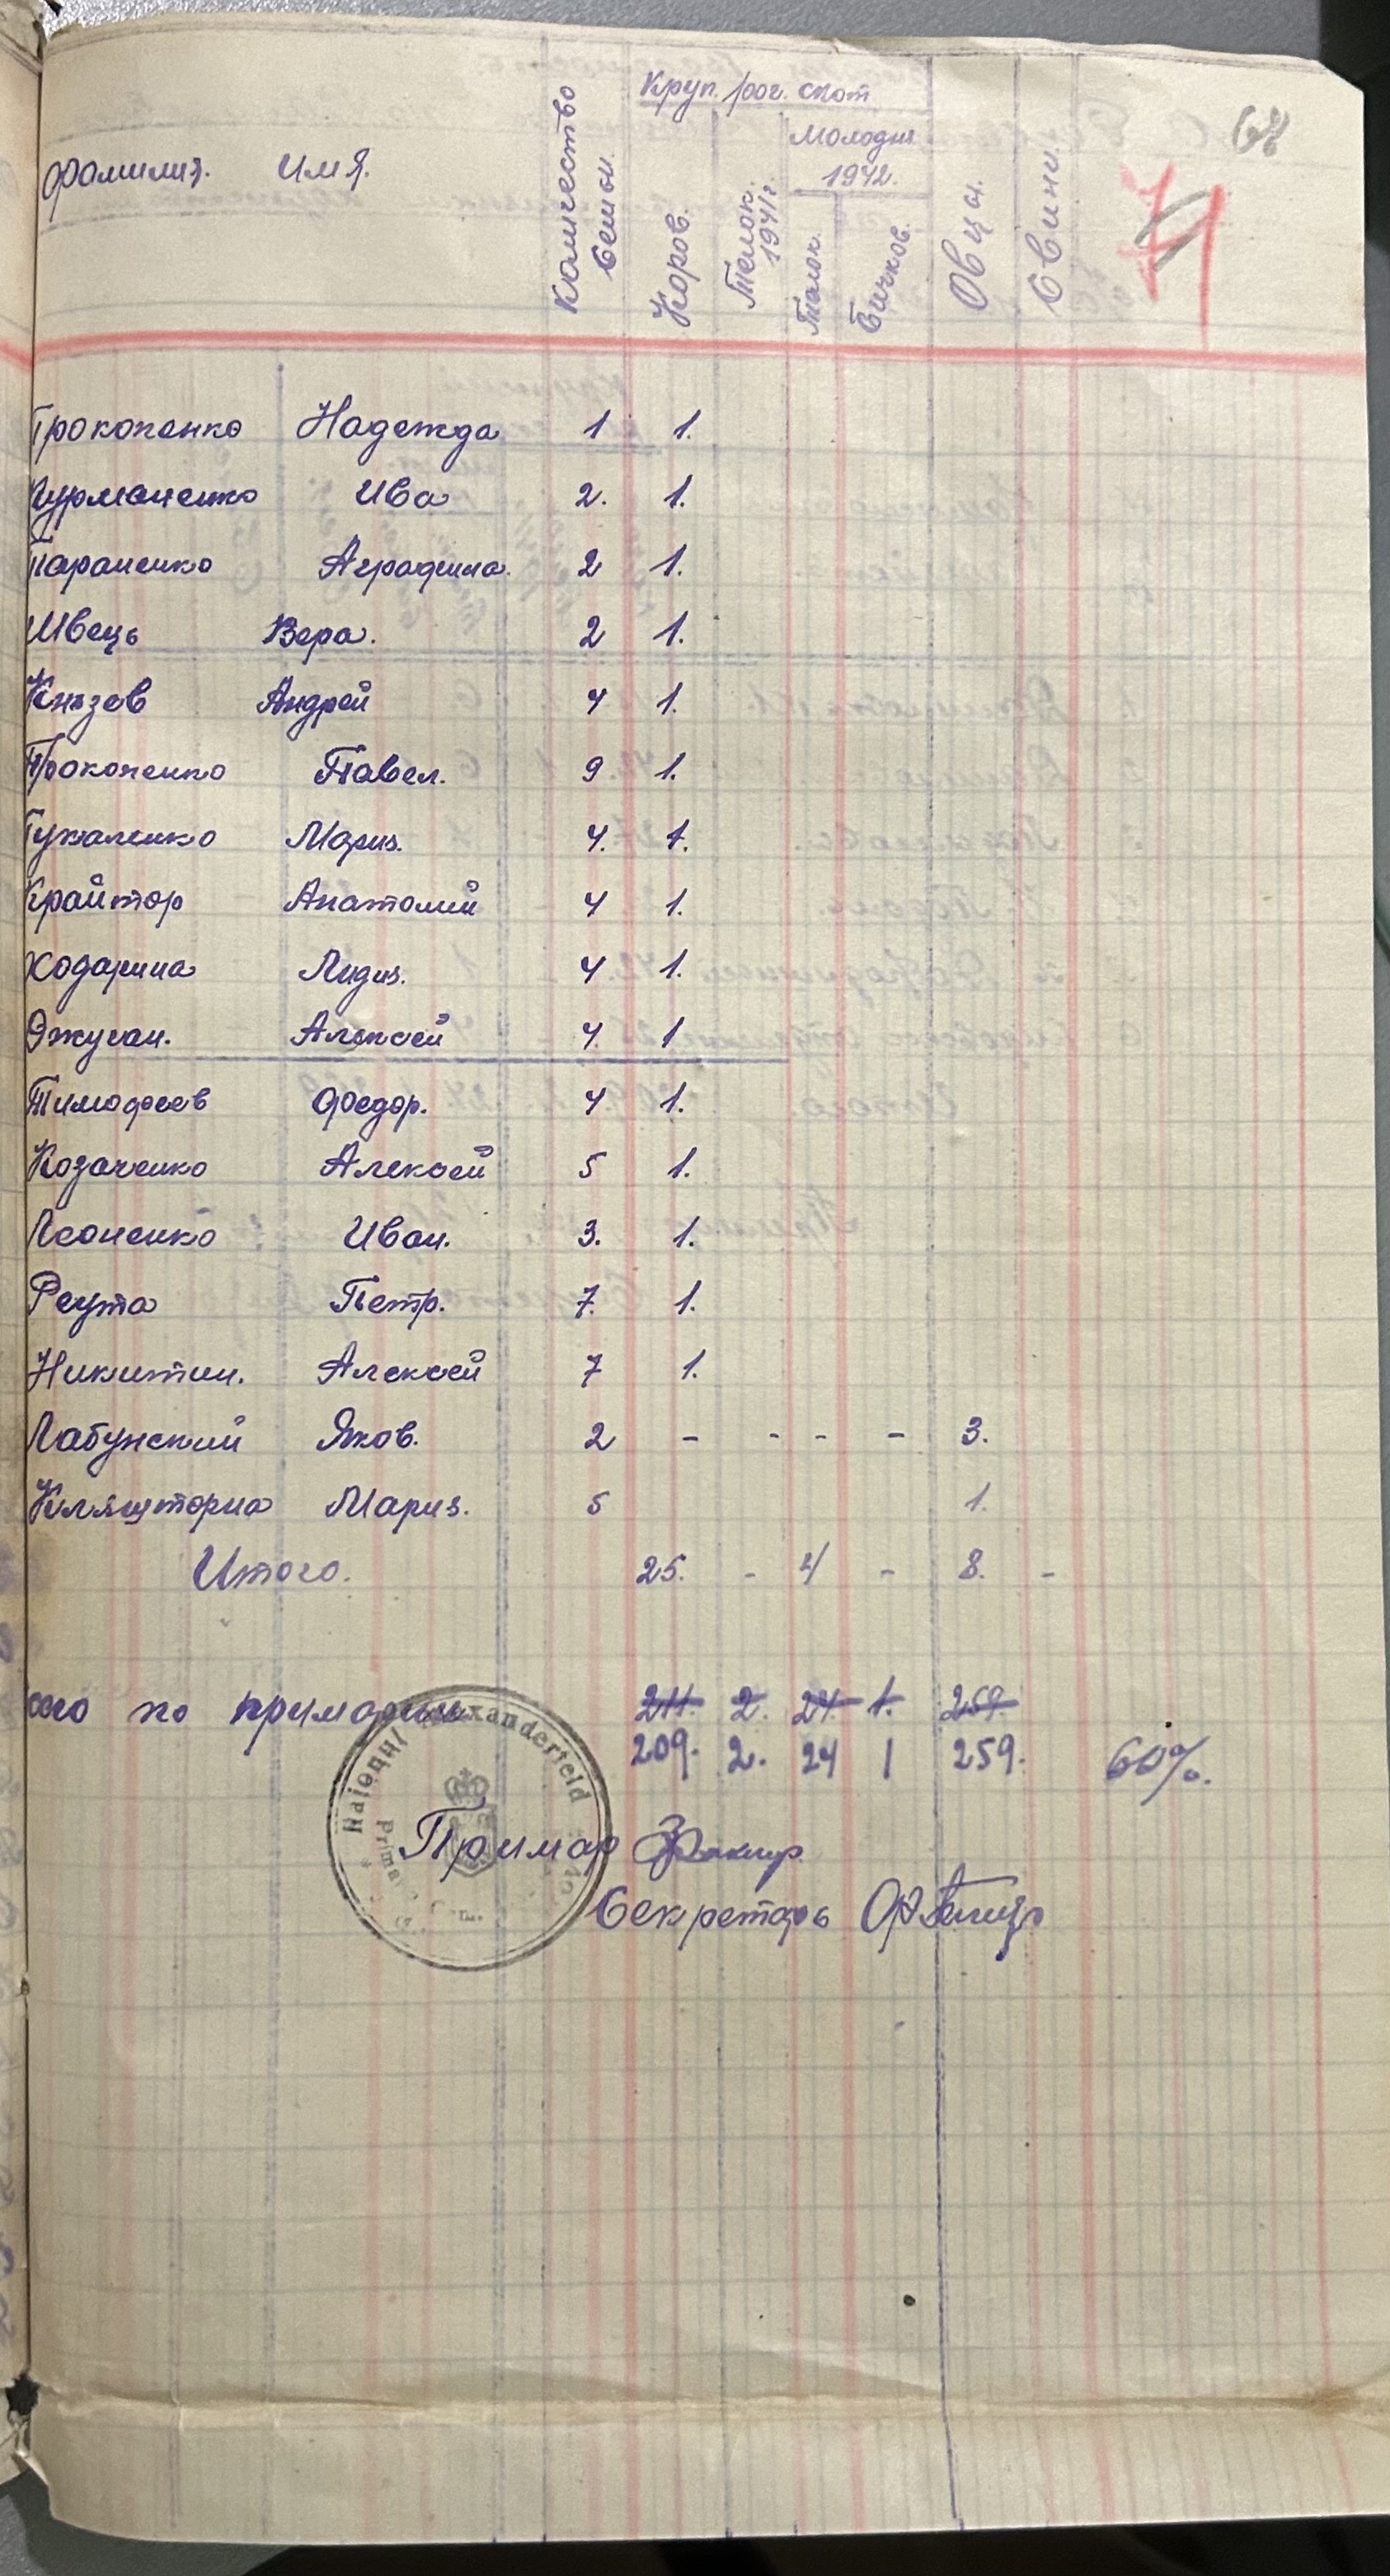 Круп. рог. скот
Фамилия. Имя. Количество семьи. Коров. Телок. 1941г. Молодня 1942. Телок. Бичков. Овцы. Свини.
Прокопенко Надежда 1 1.
Фурманенко Ива 2. 1.
Параненко Аграфина. 2 1.
Швець Вера. 2 1.
Князев Андрей 4 1.
Прокопенко Павел. 9 1.
Гукаленко Мария. 4. 1.
Крайтор Анатолий 4 1.
Ходарина Лидия. 4 1.
Джуган. Алексей 4. 1
Тимофеев Федор. 4 1.
Козаченко Алексей 5 1.
Леоненко Иван. 3. 1.
Реута Петр. 7. 1.
Никитин. Алексей 7 1.
Лабунский Яков. 2 - - - - 3.
Кляшторна Мария. 5 1.
Итого. 25. - 4 - 8. -
его по примарии 211. 2. 24. 1. 259.
209. 2. 24 1 259. 60%.
Raionul Alexanderfeld
Примар
Секретарь